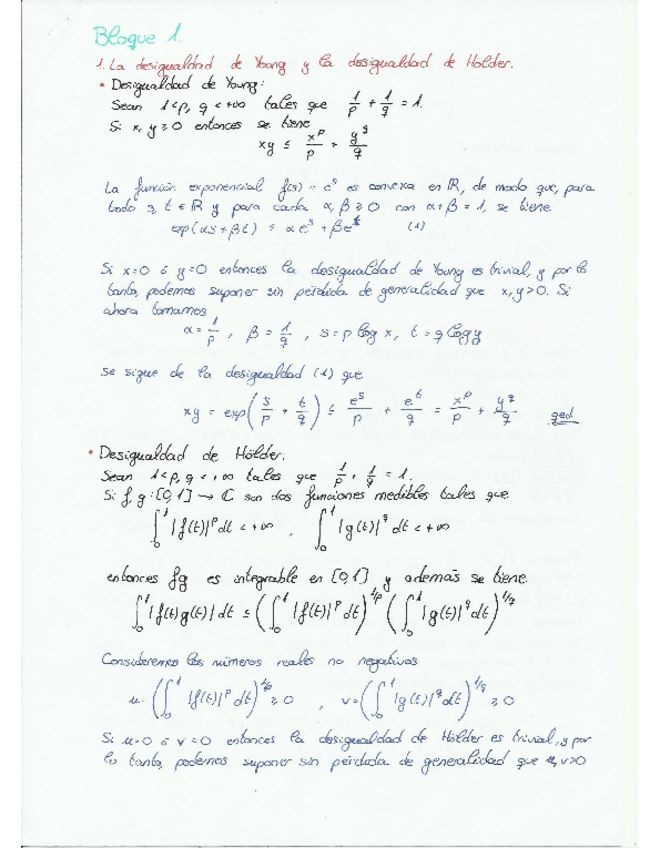 Bloque 1.
1. La desigualdad de Young y la desigualdad de Hölder.
• Desigualdad de Young:
Sean 1<p, q<+∞ tales que 1/p + 1/q = 1.
Si x, y ≥ 0 entonces se tiene
xy ≤ x^p/p + y^q/q
La función exponencial f(s) = e^s es convexa en ℝ, de modo que, para
todo s, t ∈ ℝ y para cada α, β ≥ 0 con α+β = 1, se tiene
exp(αs+βt) ≤ αe^s + βe^t (1)
Si x=0 ó y=0 entonces la desigualdad de Young es trivial, y por lo
tanto, podemos suponer sin pérdida de generalidad que x, y>0. Si
ahora tomamos
α = 1/p , β = 1/q , s = p log x, t = q log y
se sigue de la desigualdad (1) que
xy = exp(s/p + t/q) ≤ e^s/p + e^t/q = x^p/p + y^q/q qed
• Desigualdad de Hölder:
Sean 1<p, q<+∞ tales que 1/p + 1/q = 1.
Si f, g : [0,1] → ℂ son dos funciones medibles tales que
∫_0^1 |f(t)|^p dt < +∞ , ∫_0^1 |g(t)|^q dt < +∞
entonces fg es integrable en [0,1] y además se tiene
∫_0^1 |f(t)g(t)| dt ≤ (∫_0^1 |f(t)|^p dt)^1/p (∫_0^1 |g(t)|^q dt)^1/q
Consideremos los números reales no negativos
u = (∫_0^1 |f(t)|^p dt)^1/p ≥ 0 , v = (∫_0^1 |g(t)|^q dt)^1/q ≥ 0
Si u=0 ó v=0 entonces la desigualdad de Hölder es trivial, y por
lo tanto, podemos suponer sin pérdida de generalidad que u, v>0